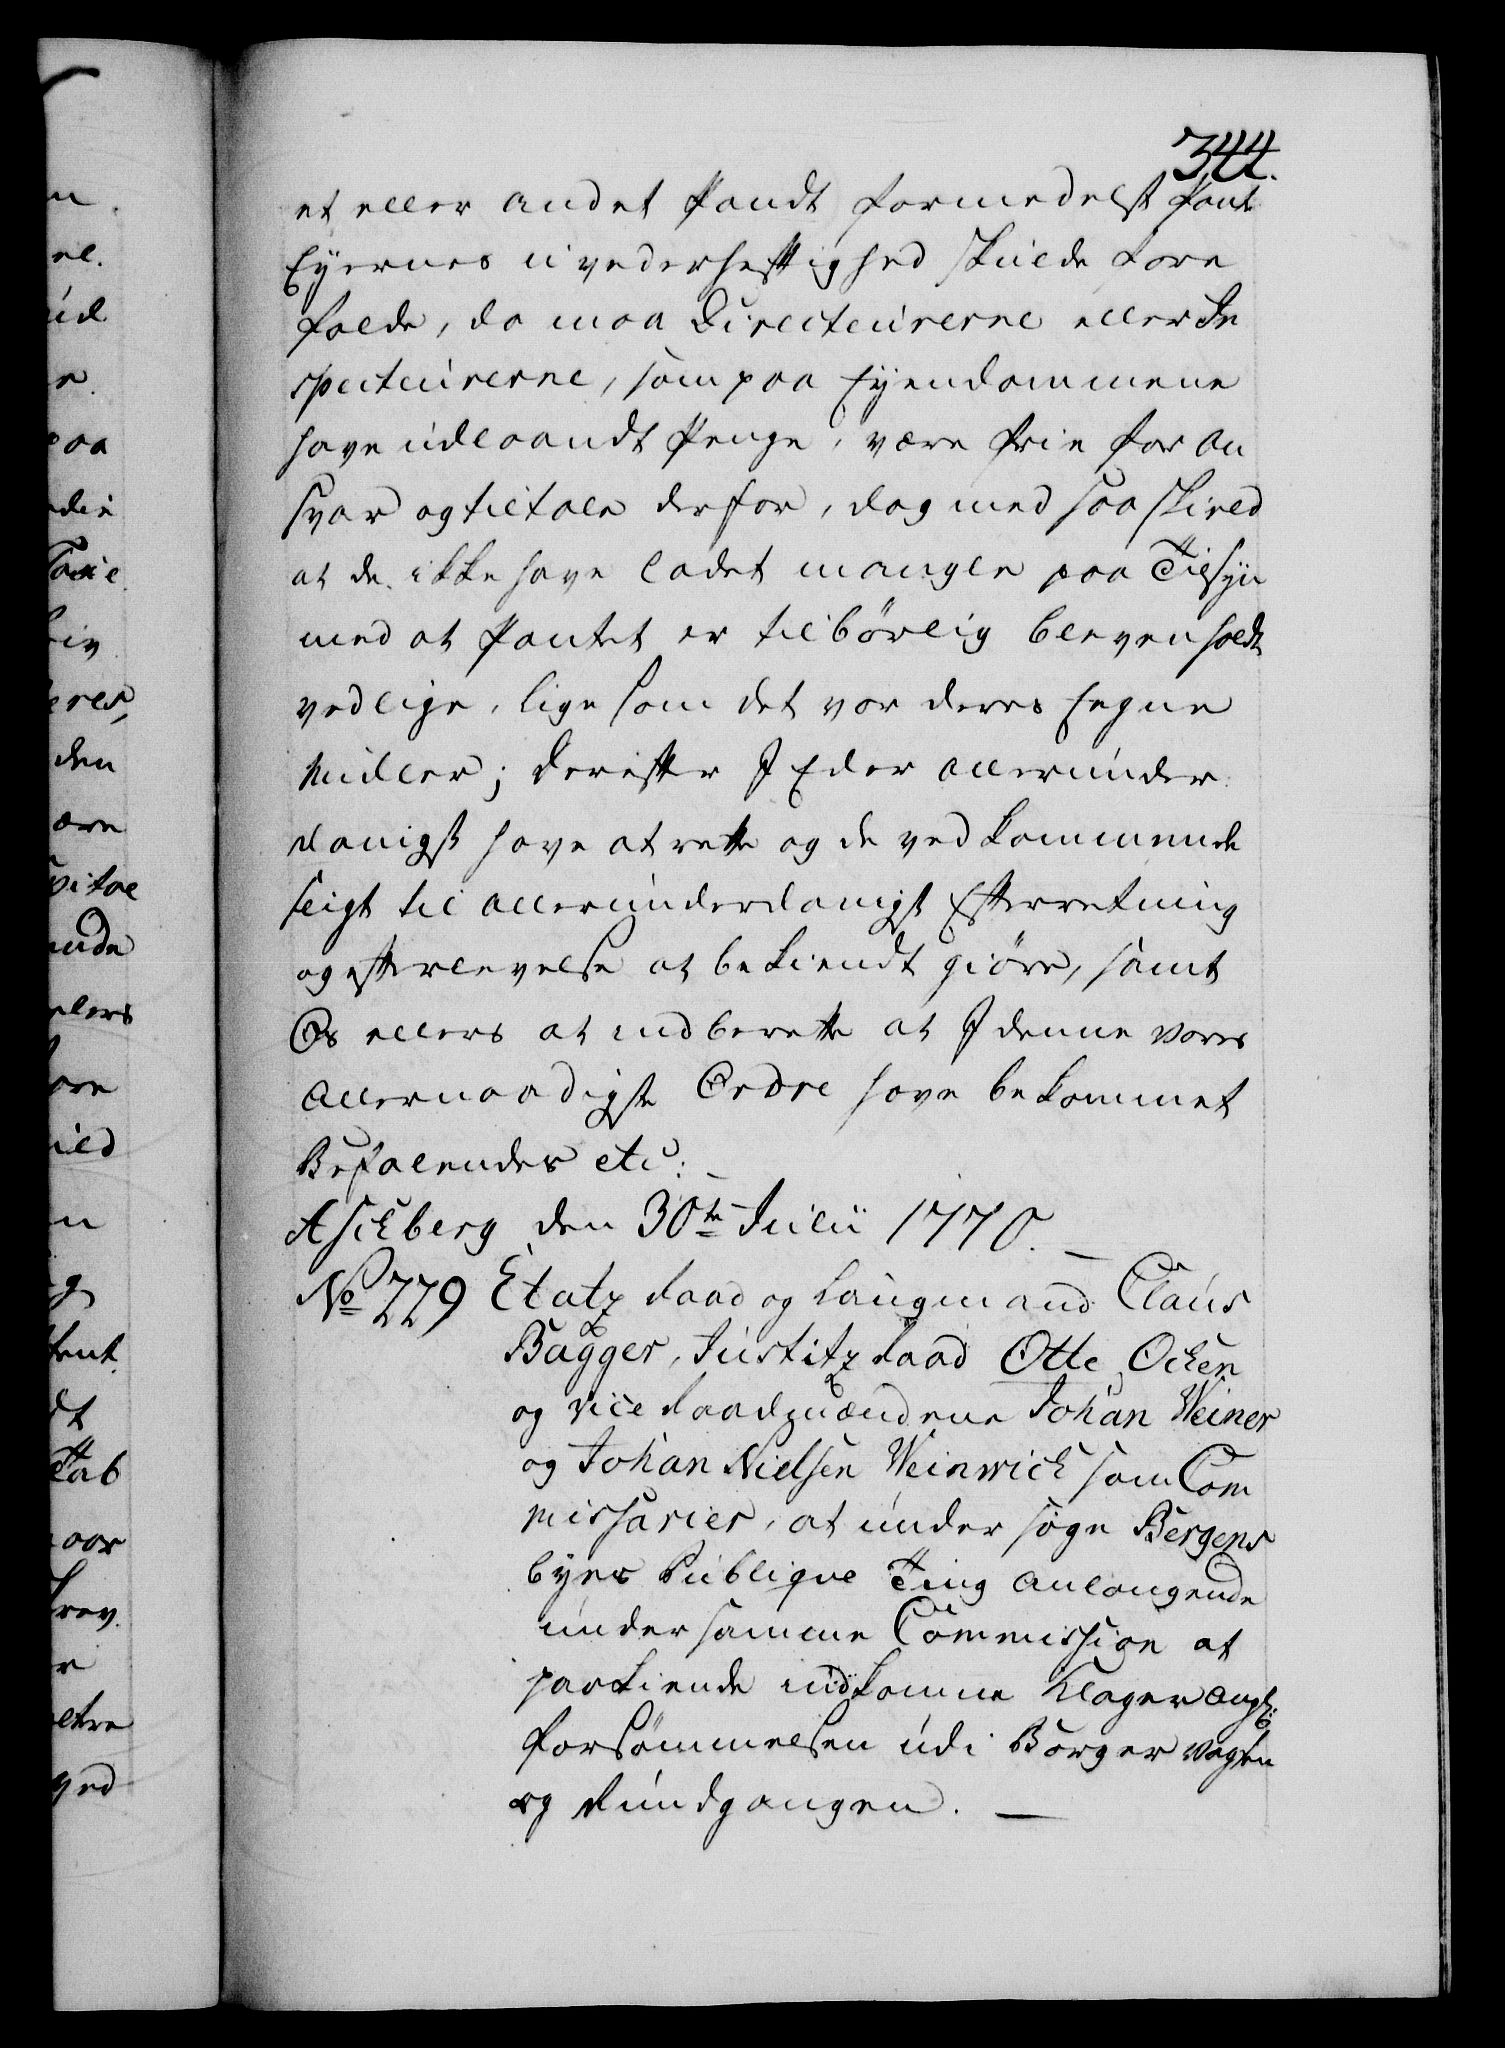 344.
et eller andet Pandt formedelst Pant
Eyernes uvederheftighed skulde fore
falde, da maa Directeurerne eller In
specteurerne, som paa Eyendommene
have udlaandt Penge, være frie for An
svar og tiltale derfor, dog med saa skield
at de ikke have ladet mangle paa Tilsyn
med at Pantet er tilbörlig bleven holdt
vedlige, lige som det var deres Eegne
Midler; derefter I Eder allerunder
danigst have at rette og de vedkommende
sligt til allerunderdanigst Efterretning
og efterlevelse at bekiendt giöre, samt
Os ellers at indberette at I denne vores
allernaadigste Ordre have bekommet
Befalendes etc:
Aschberg den 30te Julii 1770.
No 229 Etatz Raad og Laugmand Claus
Bagger, Justitz Raad Otte Ocken
og vice Raadmændene Johan Weiner
og Johan Nielsen Weinwich som Com
missarier, at under søge Bergens
byes Publique Ting anlangende
under samme Commission at
paakiende indkomne Klager angl:
forsömmelsen udi Borger vagten
og Rundgangen.